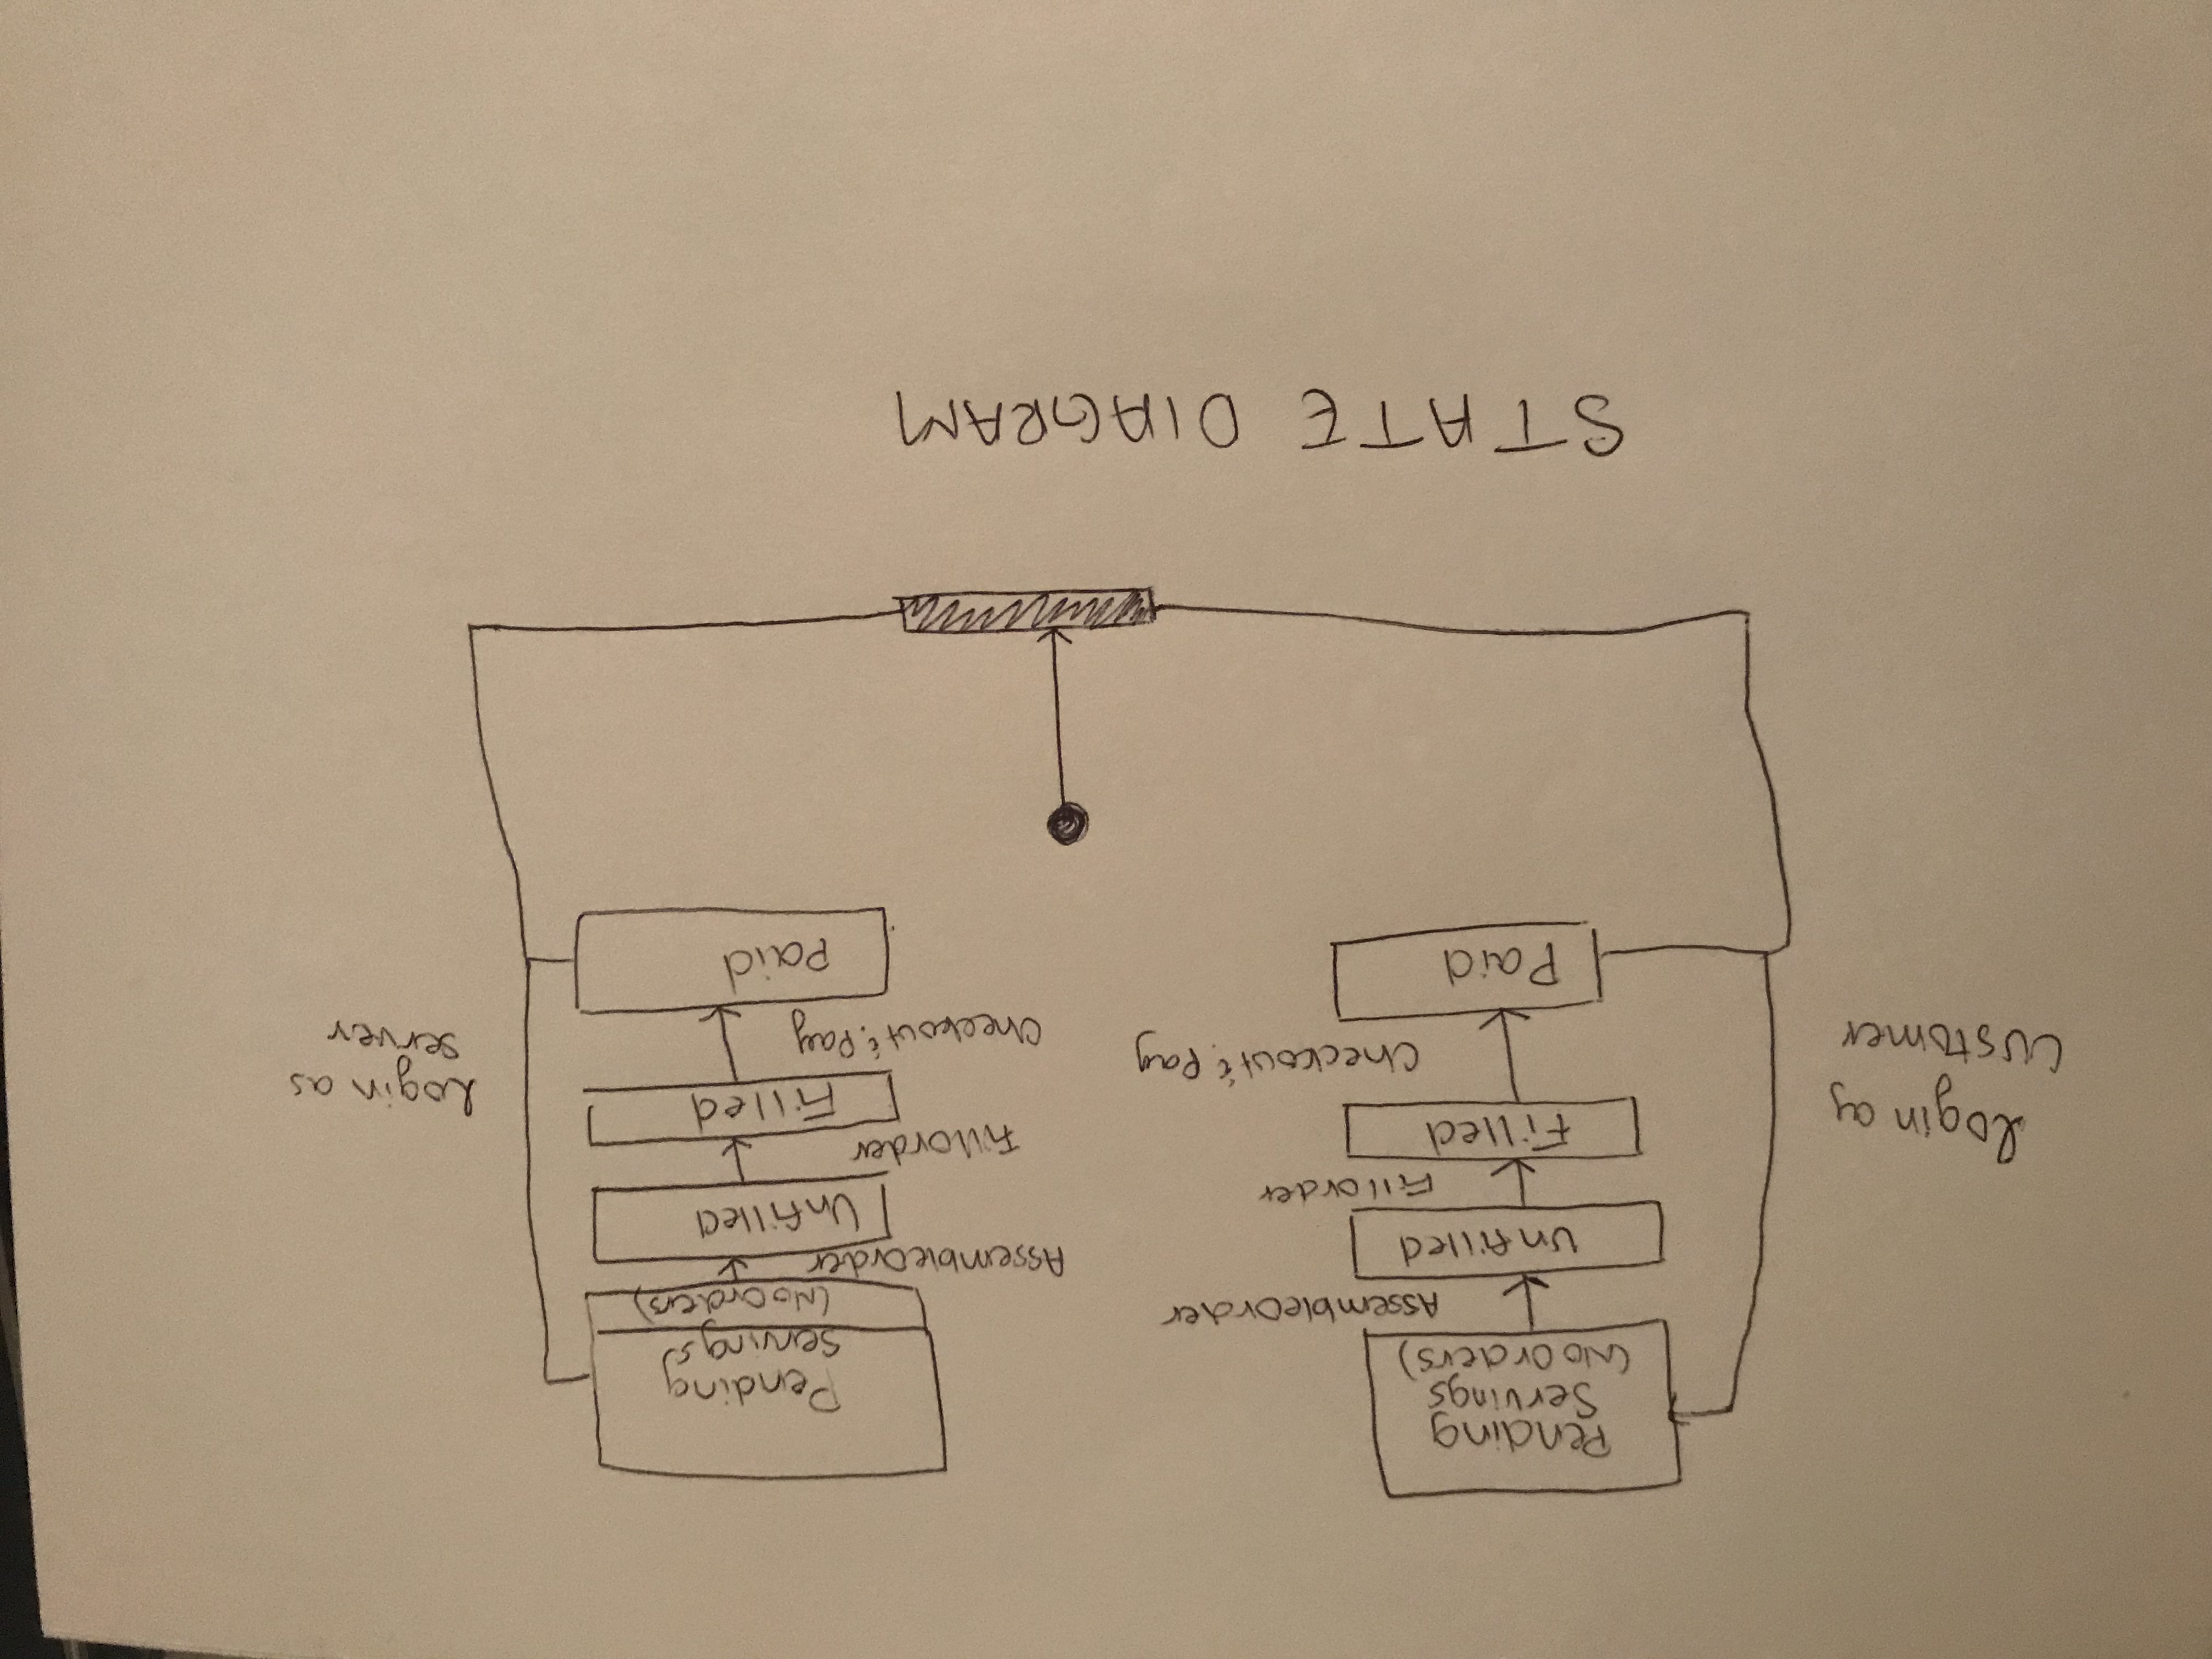 Pending
Servings
(No Orders)
AssembleOrder
Unfilled
Fillorder
Filled
Checkout & Pay
Paid
login as
customer
Pending
servings
(No Orders)
AssembleOrder
Unfilled
Fillorder
Filled
Checkout & Pay
Paid
login as
server
STATE DIAGRAM